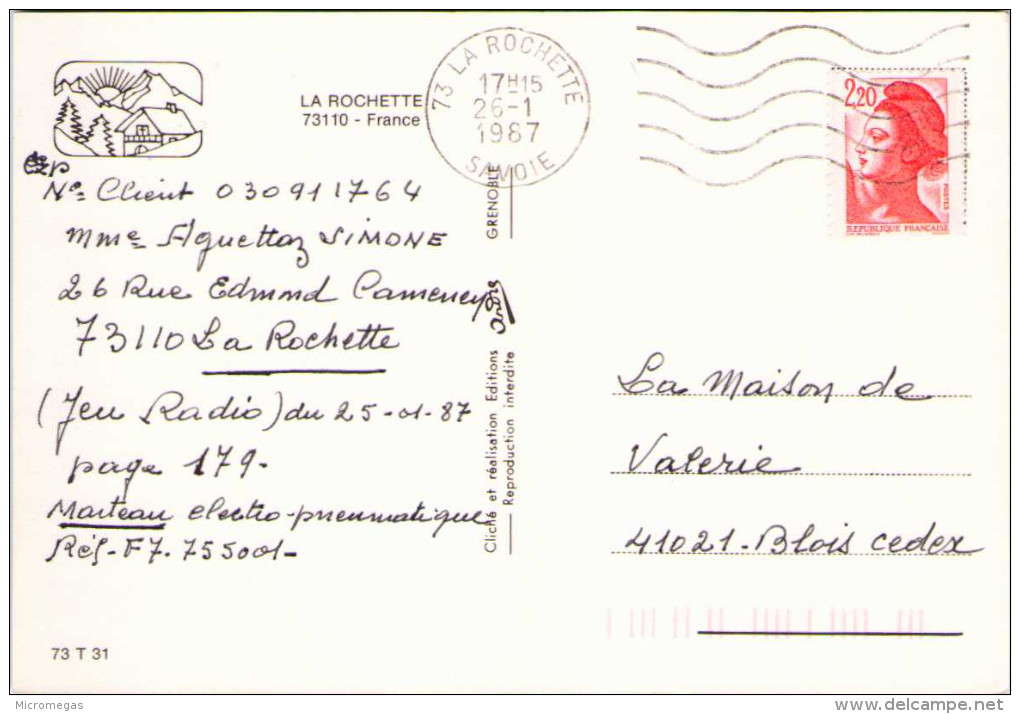 LA ROCHETTE
73110 - France
73 LA ROCHETTE
17H15
26-1
1987
SAVOIE
2,20
POSTES
REPUBLIQUE FRANÇAISE
Exp
No= Client 030911764
Mme Aguettaz SIMONE
26 Rue Edmond Cameney
73110 La Rochette
(Jeu Radio) du 25-01-87
page 179-
Marteau electro-pneumatique
Réf-F7.755001-
Cliché et réalisation Editions André GRENOBLE
Reproduction interdite
La Maison de
Valerie
41021-Blois cedex
73 T 31
Micromegas
delcampe.net